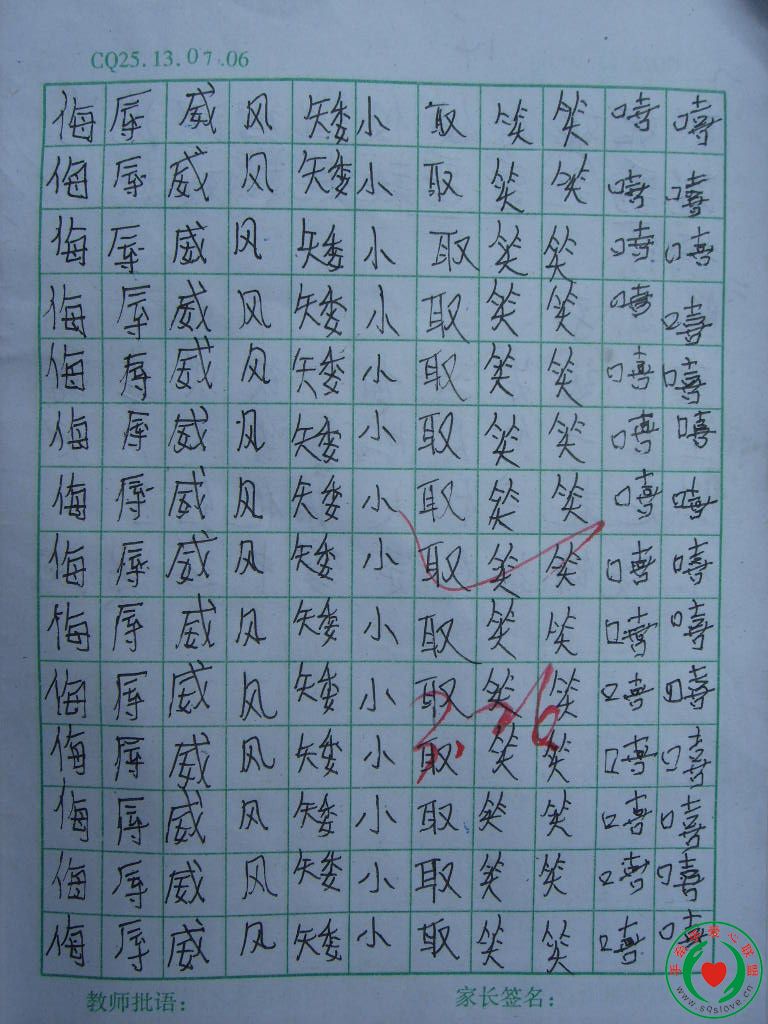 CQ25.13.07.06
侮辱威风矮小取笑笑嘻嘻
侮辱威风矮小取笑笑嘻嘻
侮辱威风矮小取笑笑嘻嘻
侮辱威风矮小取笑笑嘻嘻
侮辱威风矮小取笑笑嘻嘻
侮辱威风矮小取笑笑嘻嘻
侮辱威风矮小取笑笑嘻嘻
侮辱威风矮小取笑笑嘻嘻
侮辱威风矮小取笑笑嘻嘻
侮辱威风矮小取笑笑嘻嘻
3.26
侮辱威风矮小取笑笑嘻嘻
侮辱威风矮小取笑笑嘻嘻
侮辱威风矮小取笑笑嘻嘻
侮辱威风矮小取笑笑嘻嘻
教师批语： 家长签名：
www.sqslove.cn